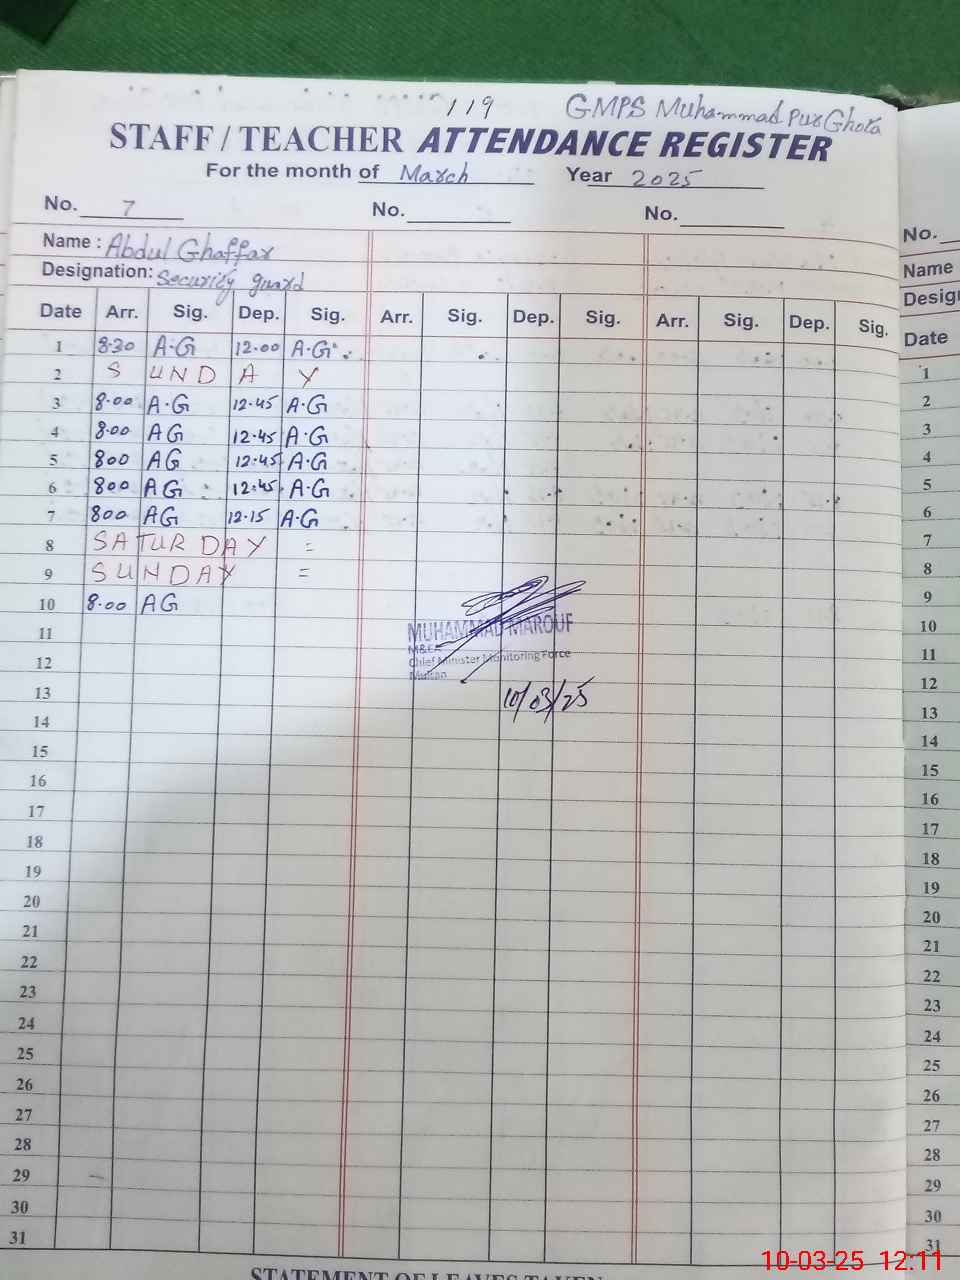 119 GMPS Muhammad Pur Ghota
STAFF / TEACHER ATTENDANCE REGISTER
For the month of March Year 2025
No. 7 No. No.
Name : Abdul Ghaffar
Designation: Security guard
Date Arr. Sig. Dep. Sig. Arr. Sig. Dep. Sig. Arr. Sig. Dep. Sig.
1 8.30 A.G 12.00 A.G
2 SUNDAY
3 8.00 A.G 12.45 A.G
4 8.00 AG 12.45 A.G
5 800 AG 12.45 A.G
6 800 AG 12.45 A.G
7 800 AG 12.15 A.G
8 SATURDAY =
9 SUNDAY =
10 8.00 AG
11
12
13
14
15
16
17
18
19
20
21
22
23
24
25
26
27
28
29
30
31
MUHAMMAD MAROUF
M&EA
Chief Minister Monitoring Force
Multan
10/03/25
STATEMENT OF LEAVES TAKEN
No.
Name
Desig
Date
1
2
3
4
5
6
7
8
9
10
11
12
13
14
15
16
17
18
19
20
21
22
23
24
25
26
27
28
29
30
31
10-03-25 12:11